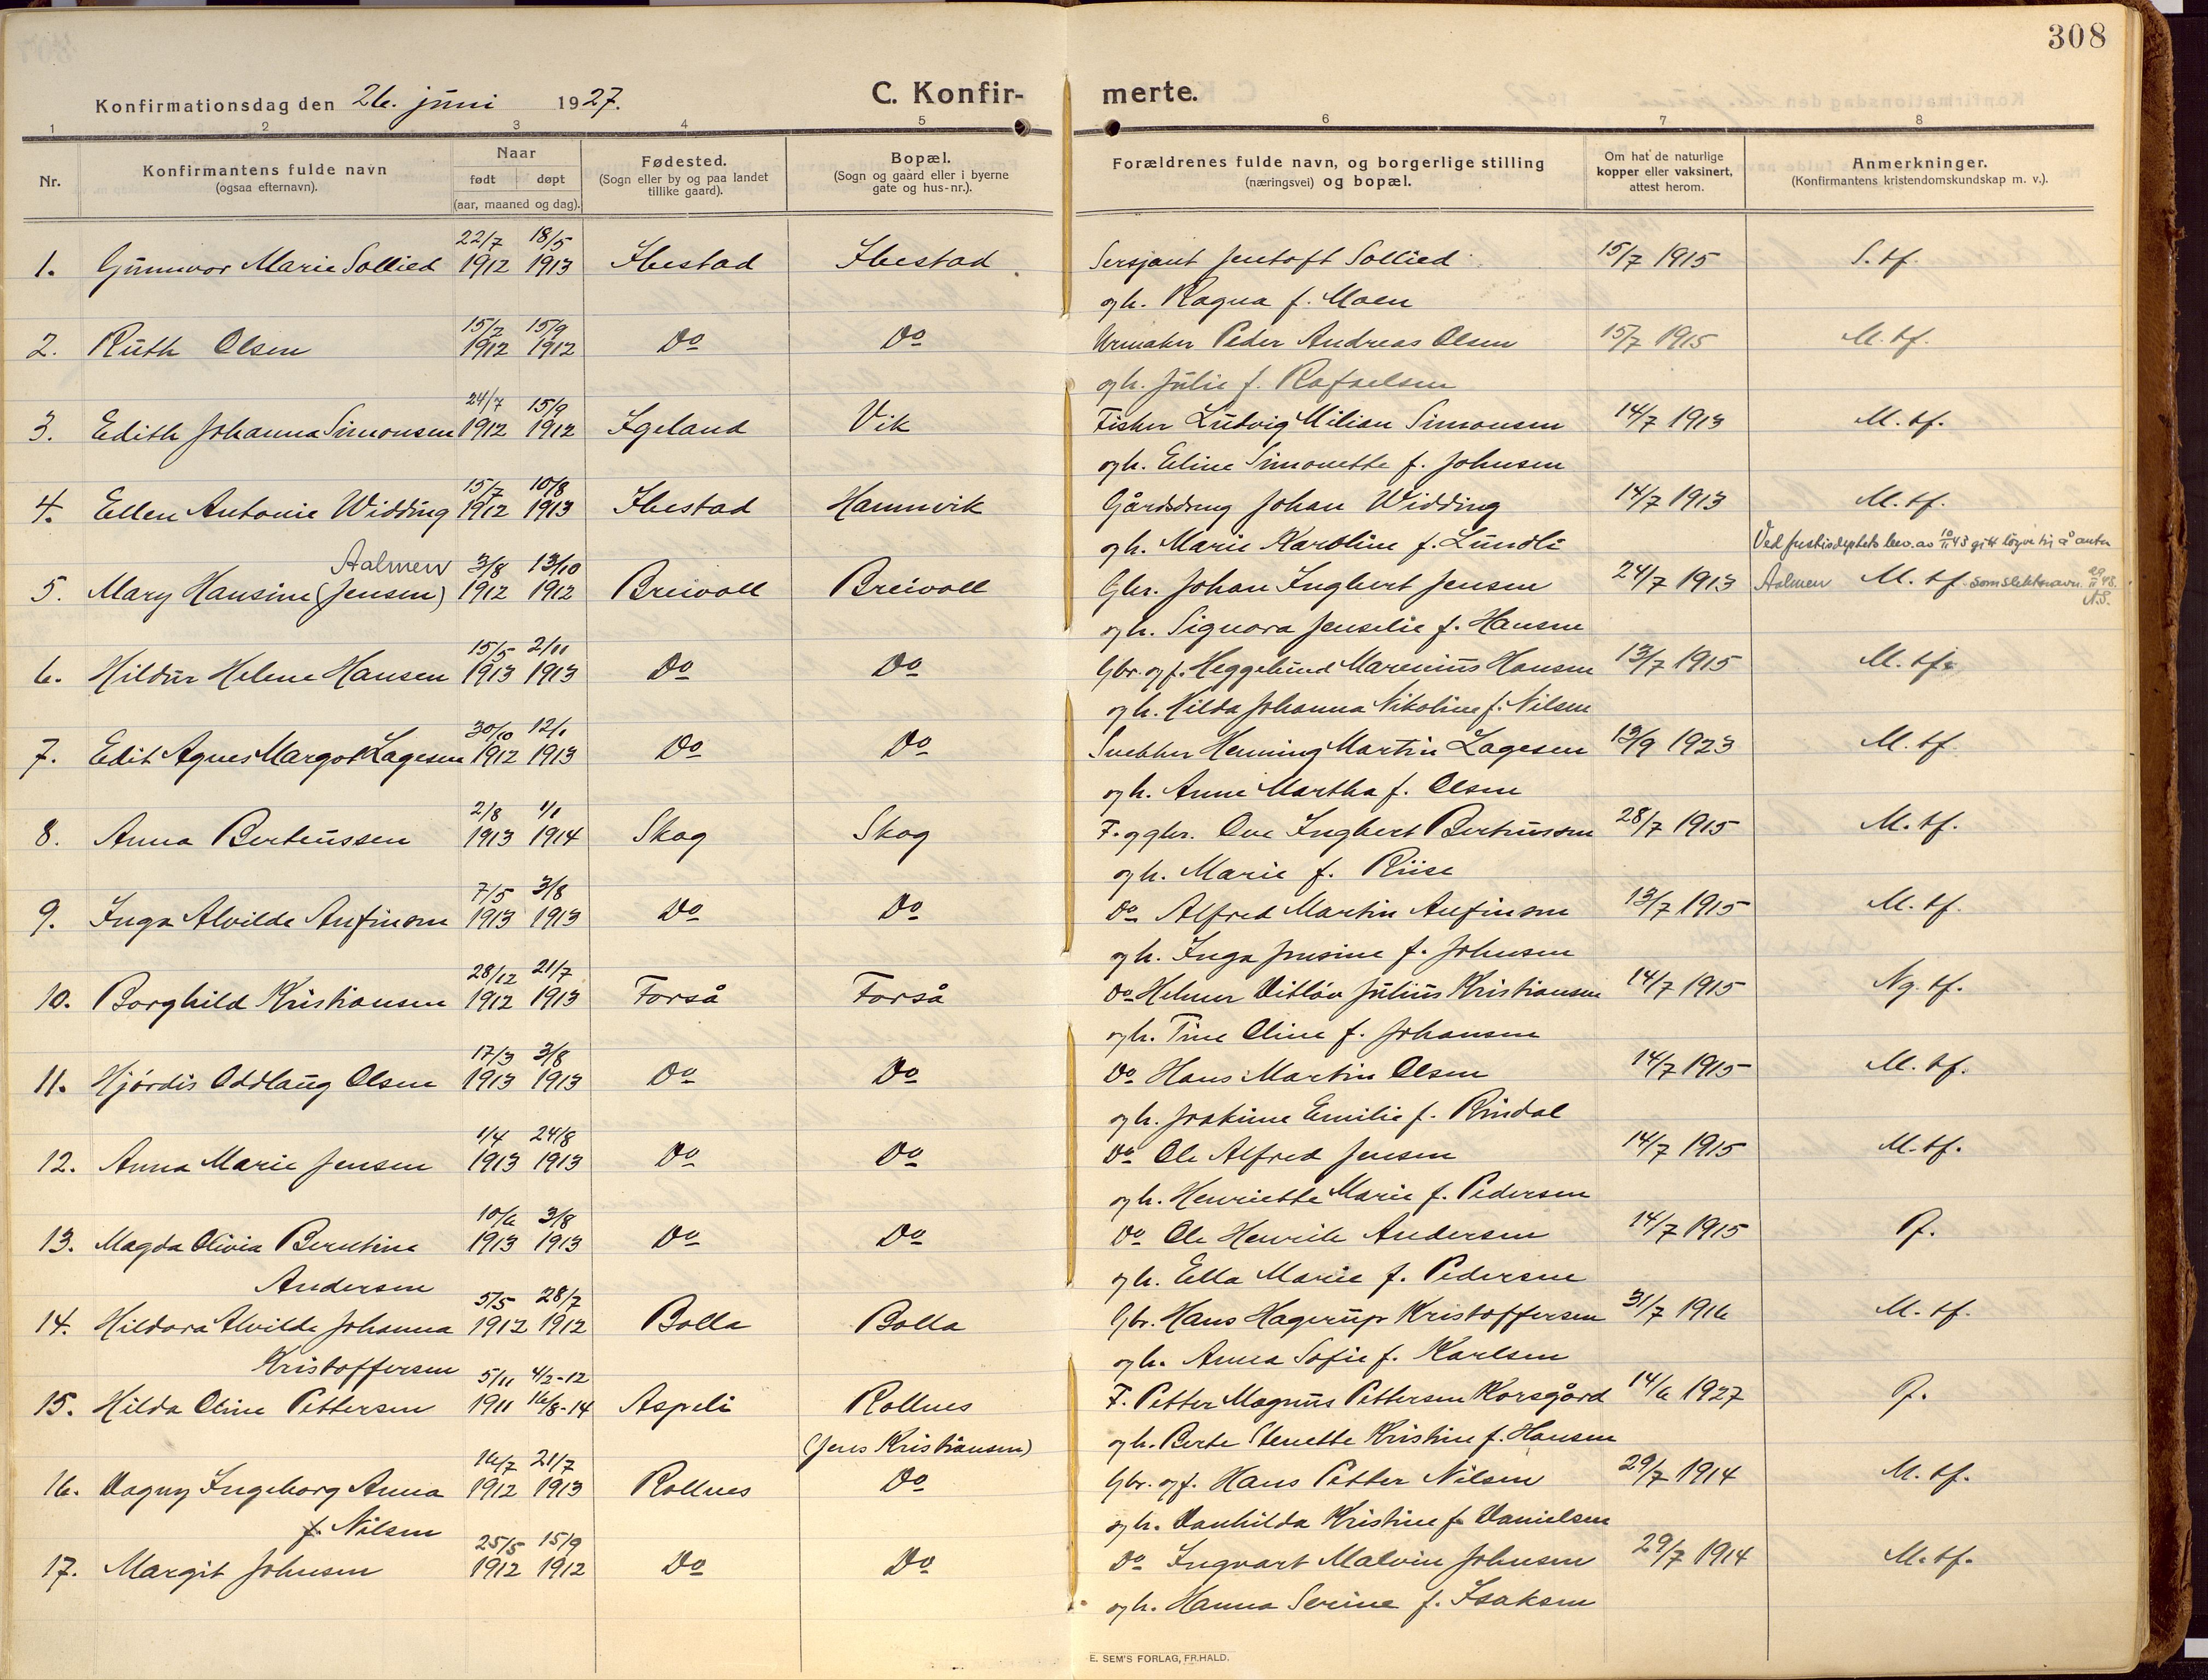 308
Konfirmationsdag den 26. juni 1927.
C. Konfir-
merte.
1 2 3 4 5 6 7 8
Nr.
Konfirmantens fulde navn
(ogsaa efternavn).
Naar
født døpt
(aar, maaned og dag).
Fødested.
(Sogn eller by og paa landet
tillike gaard).
Bopæl.
(Sogn og gaard eller i byerne
gate og hus-nr.).
Forældrenes fulde navn, og borgerlige stilling
(næringsvei) og bopæl.
Om hat de naturlige
kopper eller vaksinert,
attest herom.
Anmerkninger.
(Konfirmantens kristendomskundskap m. v.).
22/7 18/5
1. Gunnvor Marie Sollied 1912 1913 Ibestad Ibestad Sersjant Jentoft Sollied 15/7 1915 S. tf.
og h. Ragna f. Moen
15/7 15/9
2. Ruth Olsen 1912 1912 Do Do Urmaker Peder Andreas Olsen 15/7 1915 M. tf.
og h. Julie f. Rafaelsen
24/7 15/9
3. Edith Johanna Simonsen 1912 1912 Igeland Vik Fisker Ludvig Milian Simonsen 14/7 1913 M. tf.
og h. Eline Simonette f. Johnsen
15/7 10/8
4. Ellen Antonie Widding 1912 1913 Ibestad Hamnvik Gårdsdreng Johan Widding 14/7 1913 M. tf.
og h. Marie Karoline f. Lundli Ved justisdeptets bev. av 10/11 43 gitt løyve til å anta
Aalmen 3/8 13/10
5. Mary Hansine (Jensen) 1912 1912 Breivoll Breivoll Gbr. Johan Ingbert Jensen 24/7 1913 Aalmen M. tf. som slektsnavn. 29/11 43. N.S.
og h. Signora Jenselie f. Hansen
15/5 2/11
6. Hildur Helene Hansen 1913 1913 Do Do Gbr. og f. Heggelund Marenius Hansen 13/7 1915 M. tf.
og h. Hilda Johanna Nikoline f. Nilsen
30/10 12/1
7. Edit Agnes Margot Lagesen 1912 1913 Do Do Snekker Henning Martin Lagesen 13/9 1923 M. tf.
og h. Anne Martha f. Olsen
2/8 1/1
8. Anna Berteussen 1913 1914 Skog Skog F. og gbr. Ove Ingbert Berteussen 28/7 1915 M. tf.
og h. Marie f. Riise
7/5 3/8
9. Inga Alvilde Anfinsen 1913 1913 Do Do Do Alfred Martin Anfinsen 13/7 1915 M. tf.
og h. Inga Jensine f. Johnsen
28/12 21/7
10. Borghild Kristiansen 1912 1913 Forså Forså Do Helmer Ditløv Julius Kristiansen 14/7 1915 Ng. tf.
og h. Tine Oline f. Johansen
17/3 3/8
11. Hjørdis Oddlaug Olsen 1913 1913 Do Do Do Hans Martin Olsen 14/7 1915 M. tf.
og h. Joakime Emilie f. Rindal
1/4 24/8
12. Anna Marie Jensen 1913 1913 Do Do Do Ole Alfred Jensen 14/7 1915 M. tf.
og h. Henriette Marie f. Pedersen
10/6 3/8
13. Magda Olivia Berntine 1913 1913 Do Do Do Ole Henrik Andersen 14/7 1915
Andersen og h. Ella Marie f. Pedersen
5/5 28/7
14. Hildora Alvilde Johanna 1912 1912 Bolla Bolla Gbr. Hans Hagerup Kristoffersen 31/7 1916 M. tf.
Kristoffersen og h. Anna Sofie f. Karlsen
5/11 4/2-12
15. Hilda Oline Pettersen 1911 16/8-14 Aspeli Rollnes F. Petter Magnus Pettersen Korsgård 14/6 1927
(Jens Kristiansen) og h. Berte Stenette Kristine f. Hansen
16/7 21/7
16. Dagny Ingeborg Anna 1912 1913 Rollnes Do Gbr. og f. Hans Petter Nilsen 29/7 1914 M. tf.
f. Nilsen og h. Danhilda Kristine f. Danielsen
25/5 15/9
17. Margit Johnsen 1912 1912 Do Do Do Ingvart Malvin Johnsen 29/7 1914 M. tf.
og h. Hanna Serine f. Isaksen
E. SEM'S FORLAG, FR.HALD.